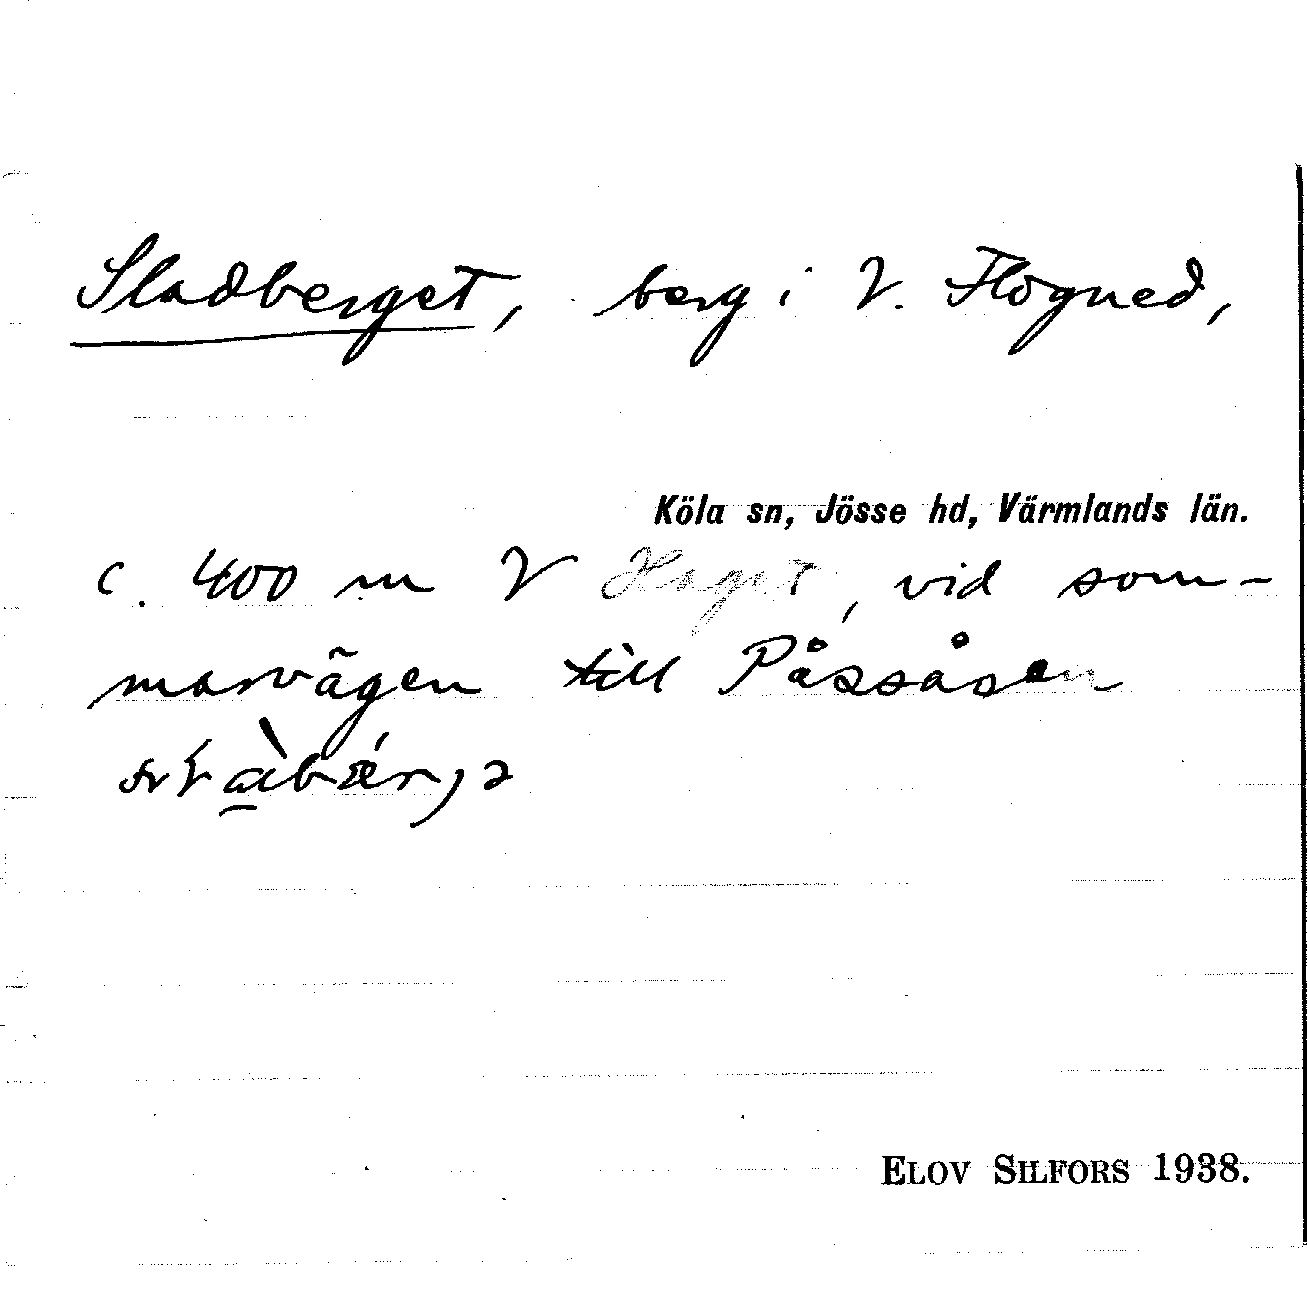 Sladberget, berg i V. Flogned,
Köla sn, Jösse hd, Värmlands län.
c. 400 m V Haget, vid som-
marvägen till Påssåsen
ELOV SILFORS 1938.